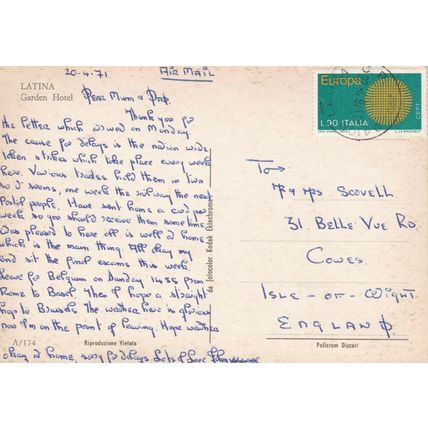 20-4-71 AIR MAIL
LATINA
Garden Hotel
Dear Mum & Dad,
Thank you for
the letter which arrived on Monday
The cause for delays is the nation wide
token strikes which take place every week
here. Various trades hold them in turn
so it seems, one week the railway the next
Postal people. Have sent home a card per
week so you should receive them some time
Was pleased to hear all is well at home
which is the main thing. All okay my
end sit the final exams this week.
Leave for Belgium on Sunday 1435 from
Rome to Basel. Then I hope a straight
to Brussels. The weather here is glorious
now I'm on the point of leaving. Hope weather
okay at home, sorry for delays. Lots of Love John
A/174
Riproduzione Vietata
da fotocolor Kodak Ektachrome
Europa
L.90 ITALIA
CEPT
To
Mr & Mrs SCOVELL
31. BELLE-VUE RD.
COWES.
ISLE-OF-WIGHT.
ENGLAND.
Policrom Discari